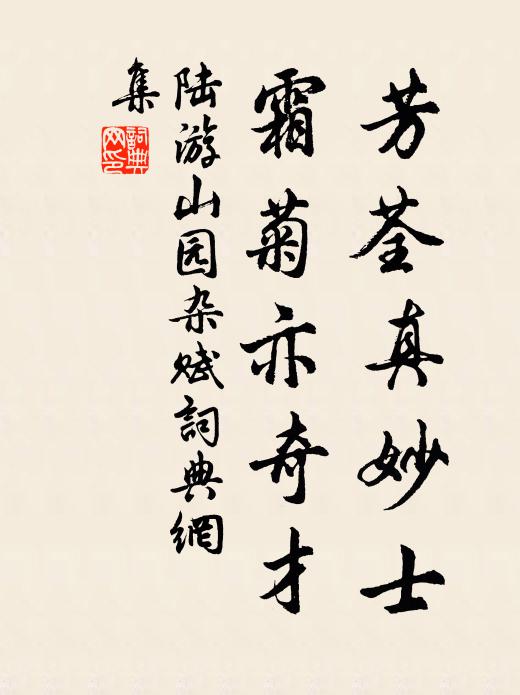 芳荃真妙士
霜菊亦奇才
陆游山园杂赋詞典網
集
詞典網印